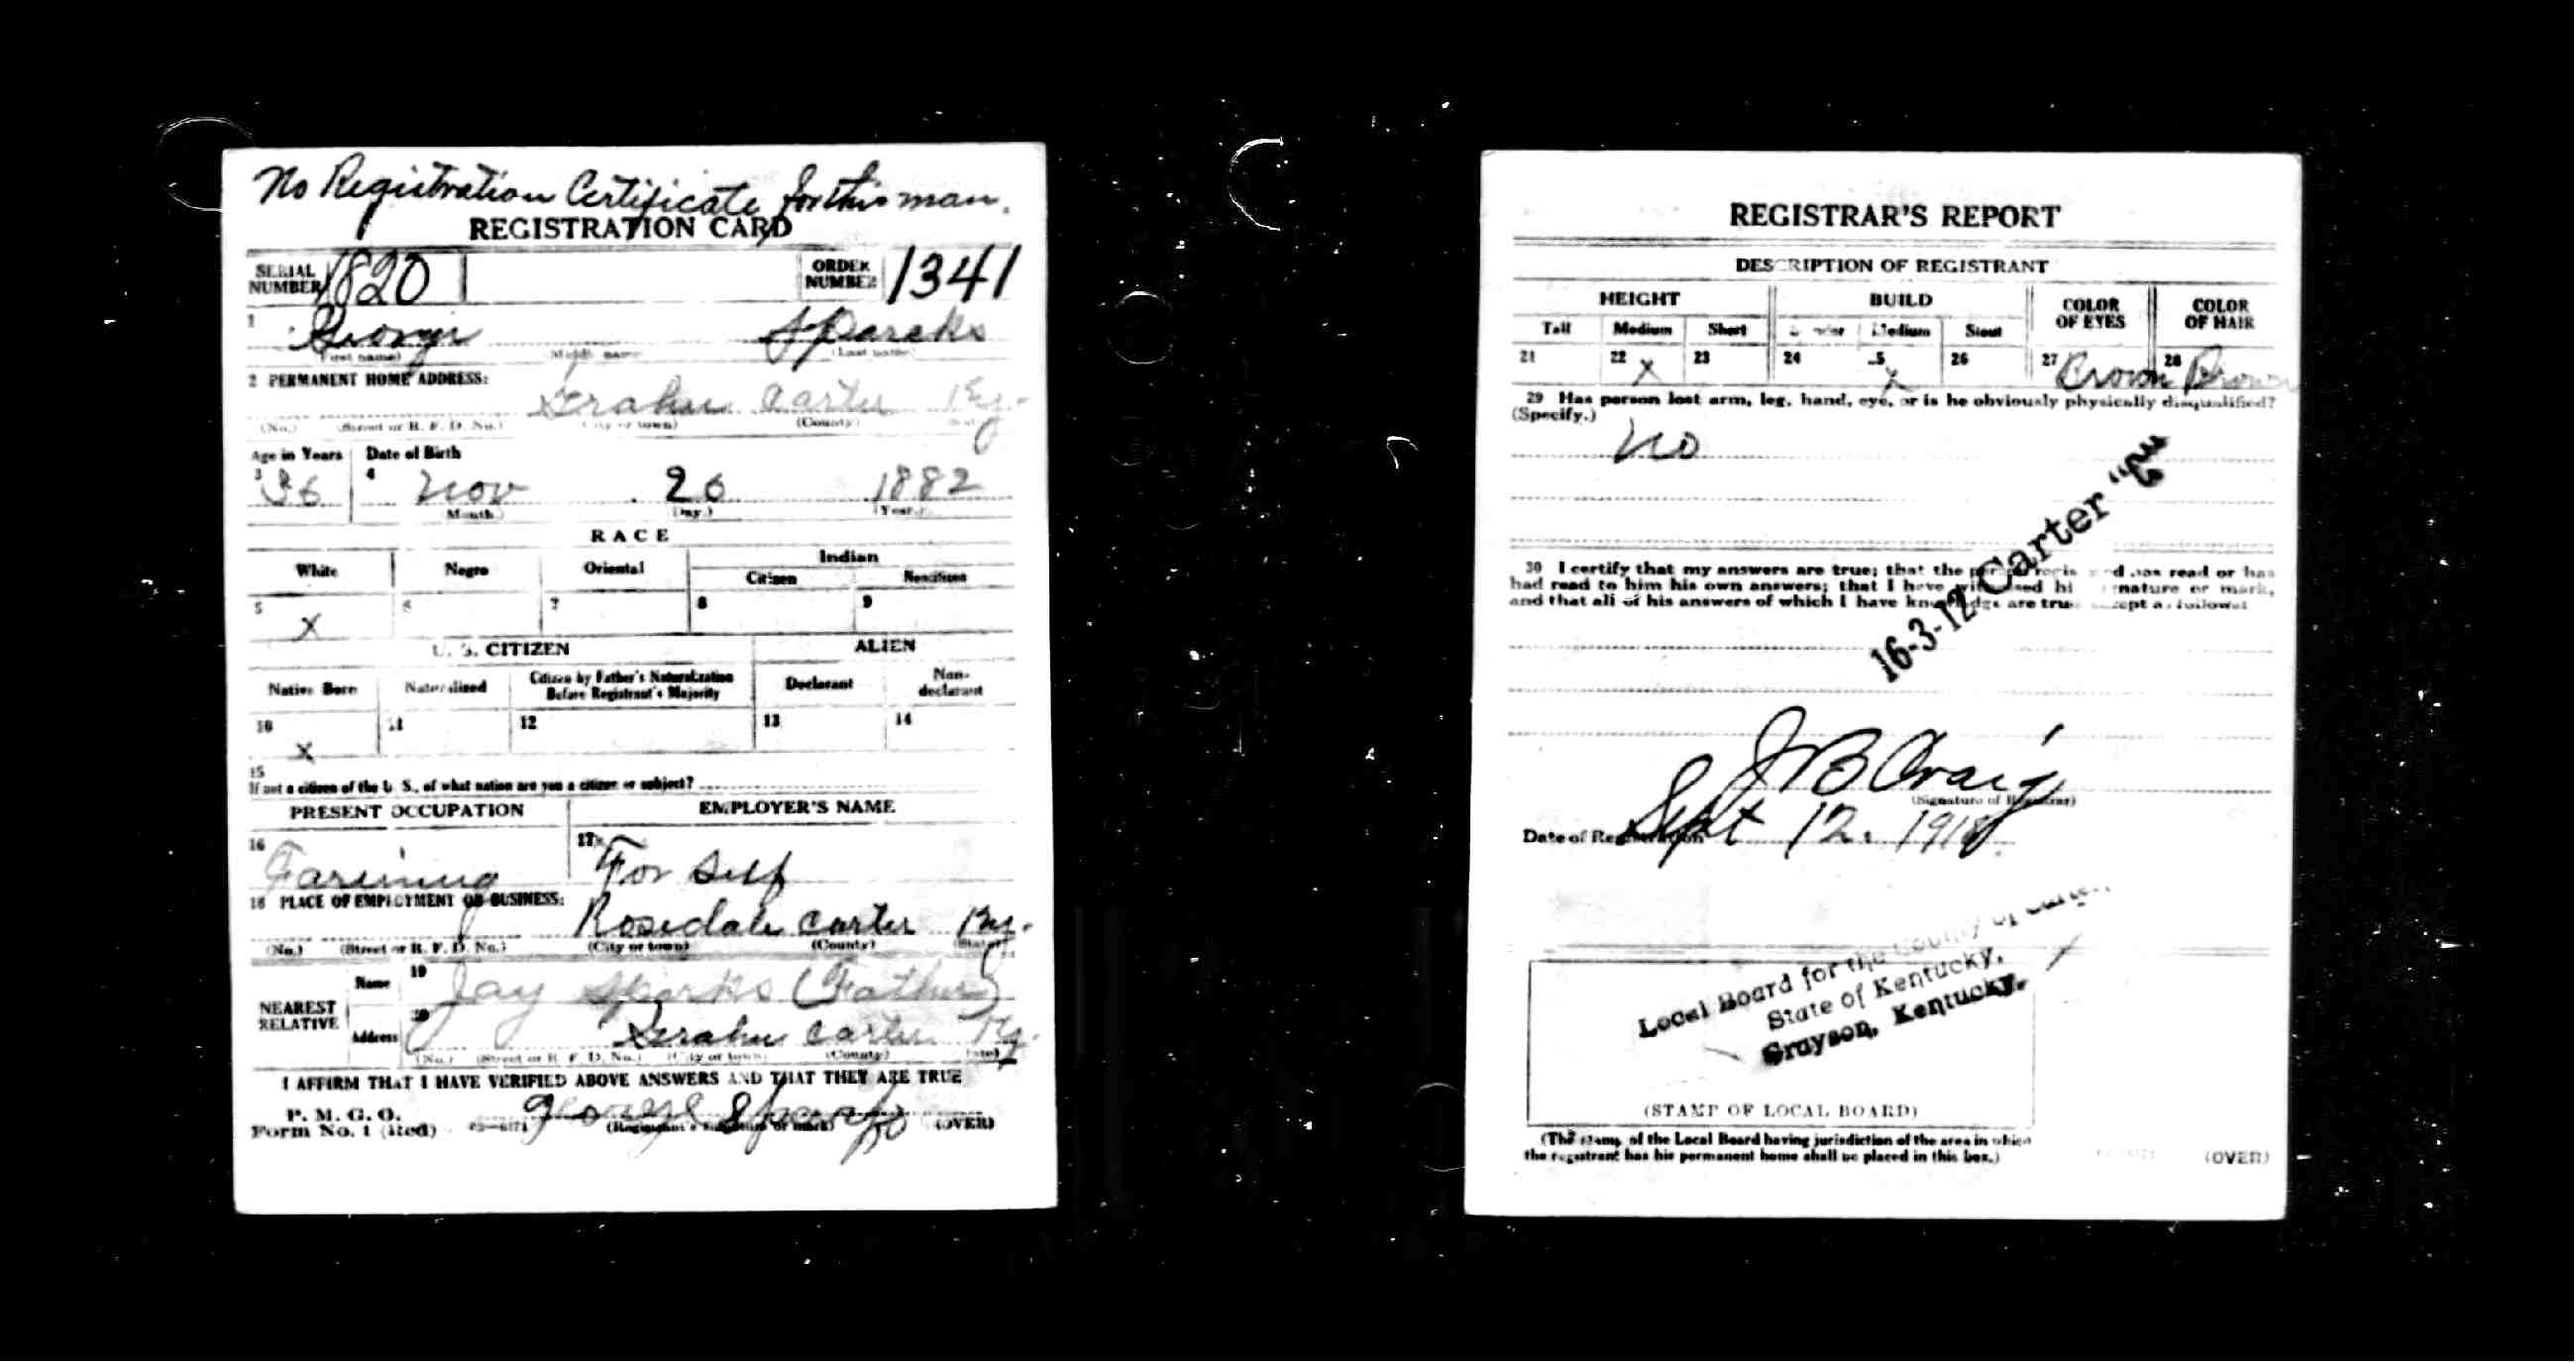 No Registration Certificate for this man.
REGISTRATION CARD
SERIAL NUMBER 1820 ORDER NUMBER 1341
1 George Sparcks
(First name) (Middle name) (Last name)
2 PERMANENT HOME ADDRESS:
Carter Ky.
(No.) (Street or R. F. D. No.) (City or town) (County) (State)
Age in Years Date of Birth
3 36 4 Nov 26 1882
(Month.) (Day.) (Year.)
RACE
White Negro Oriental Indian
Citizen Noncitizen
5 6 7 8 9
X
U. S. CITIZEN ALIEN
Native Born Naturalized Citizen by Father's Naturalization Before Registrant's Majority Declarant Non-declarant
10 11 12 13 14
X
15
If not a citizen of the U. S., of what nation are you a citizen or subject?
PRESENT OCCUPATION EMPLOYER'S NAME
16 Farming 17 For Self
18 PLACE OF EMPLOYMENT OR BUSINESS:
Rosedale Carter Ky.
(No.) (Street or R. F. D. No.) (City or town) (County) (State)
NEAREST RELATIVE Name 19 Jay Sparks (Father)
Address 20 Carter Ky.
(No.) (Street or R. F. D. No.) (City or town) (County) (State)
I AFFIRM THAT I HAVE VERIFIED ABOVE ANSWERS AND THAT THEY ARE TRUE
P. M. G. O.
Form No. 1 (Red) George Sparks (OVER)
(Registrant's signature or mark)
REGISTRAR'S REPORT
DESCRIPTION OF REGISTRANT
HEIGHT BUILD COLOR OF EYES COLOR OF HAIR
Tall Medium Short Slender Medium Stout
21 22 X 23 24 25 X 26 27 Brown 28 Brown
29 Has person lost arm, leg, hand, eye, or is he obviously physically disqualified?
(Specify.)
No
30 I certify that my answers are true; that the person registered has read or has
had read to him his own answers; that I have witnessed his signature or mark,
and that all of his answers of which I have knowledge are true, except as follows:
16-3-12 Carter "C"
J B Craig
(Signature of Registrar)
Date of Registration Sept 12. 1918
Local Board for the County of Carter,
State of Kentucky,
Grayson, Kentucky.
(STAMP OF LOCAL BOARD)
(The stamp of the Local Board having jurisdiction of the area in which
the registrant has his permanent home shall be placed in this box.)
(OVER)